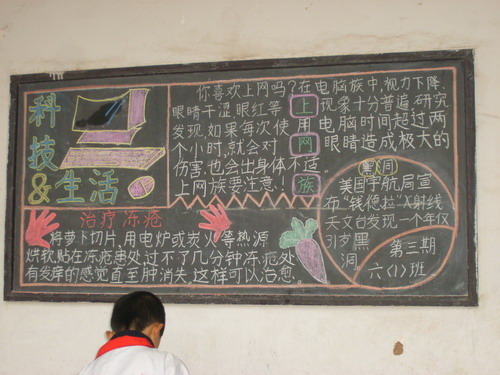 科技&生活
你喜欢上网吗?在电脑族中,视力下降、
眼睛干涩、眼红等现象十分普遍.研究
发现,如果每次使用电脑时间超过两
个小时,就会对眼睛造成极大的
伤害,也会出身体不适。
上网族要注意!
上网族
治疗冻疮
将萝卜切片,用电炉或炭火等热源
烘软,贴在冻疮患处,过不了几分钟,冻疮处
有发痒的感觉直至肿消失.这样可以治愈。
黑洞
美国宇航局宣
布“钱德拉”X射线
天文台发现一个年仅
31岁黑
洞。
第三期
六(1)班